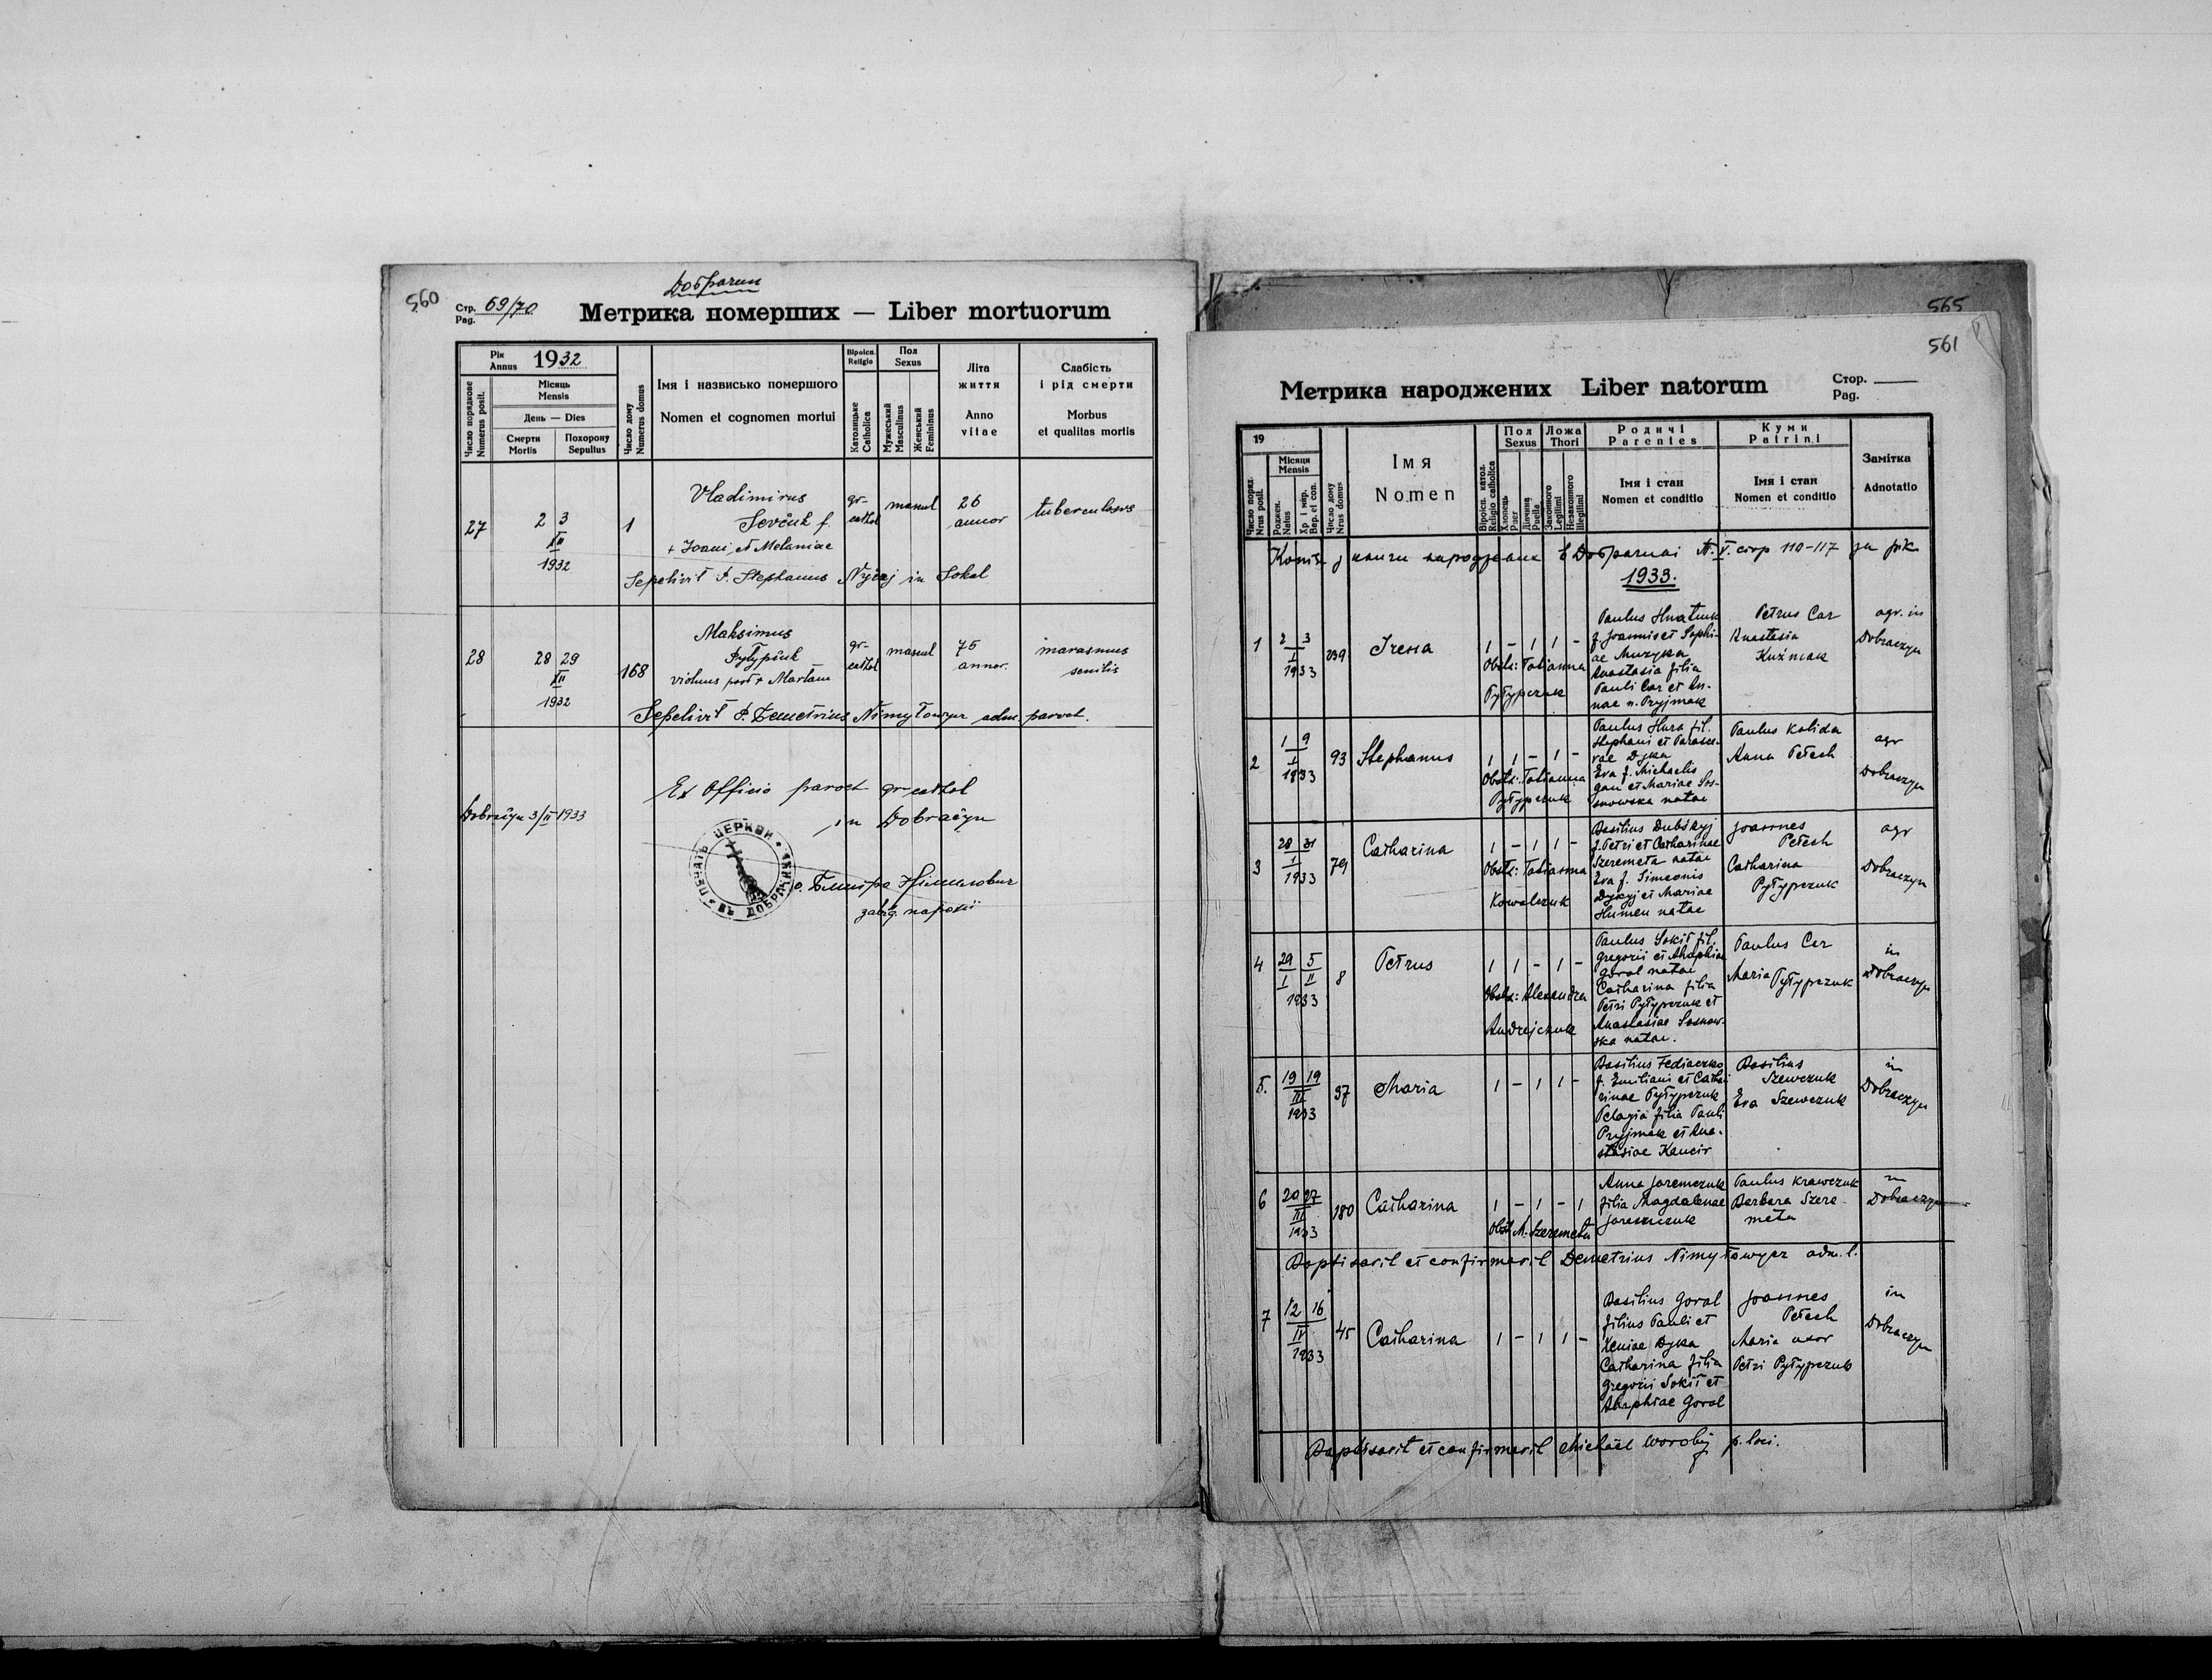 560
Добрачин
Стр. 69/70
Pag.
Метрика померших — Liber mortuorum
Рік
Annus 1932
Місяць
Mensis
День — Dies
Число порядкове
Numerus posit.
Смерти
Mortis
Похорону
Sepultus
Число дому
Numerus domus
Імя і назвисько помершого
Nomen et cognomen mortui
Віроісп.
Religio
Католицьке
Catholica
Пол
Sexus
Мужеський
Masculinus
Женський
Femininus
Літа
життя
Anno
vitae
Слабість
і рід смерти
Morbus
et qualitas mortis
27
2 3
XII
1932
1
Vladimirus
Sevčuk f.
+ Joani, et Melaniae
gr-
cathol
mascul
26
annor
tuberculosis
Sepelivit P. Stephanus in Sokal
28
28 29
XII
1932
168
Maksimus
Pytypčuk
viduus post + Martam
gr-
cathol
mascul
75
annor.
marasmus
senilis
Sepelivit P. Demetrius Nimyłowycz adm. paroch.
Ex Officio paroch gr-cathol
in Dobračyn
Dobračyn 3/II 1933
ПЕЧАТЬ ЦЕРКВИ ВЪ ДОБРАЧИНѢ
о. Німилович
завід. парохії
565
561
Метрика народжених Liber natorum
Стор.
Pag.
19
Місяця
Mensis
Число поряд.
Nrus posit.
Роджен.
Natus
Хр. і мир.
Bap. et con.
Число дому
Nrus domus
Імя
Nomen
Віроісп. катол.
Religio catholica
Пол
Sexus
Хлопець
Puer
Дівчина
Puella
Ложа
Thori
Законного
Legitimi
Незаконного
Illegitimi
Родичі
Parentes
Імя і стан
Nomen et conditio
Куми
Patrini
Імя і стан
Nomen et conditio
Замітка
Adnotatio
Копія з книги народжених в Добрачині Т. V. стор 110-117 за рік
1933.
1
2 3
I
1933
239
Ірена
1 - 1 1 -
Obstk: Tatianna
Pytypczuk
Paulus Hnatiuk
f. Joannis et Sophi-
ae Muzyka
Anastasia filia
Pauli Car et An-
nae n. Pryjmak
Petrus Car
Anastasia
Kuźniak
agr. in
Dobraczyn
2
1 9
I
1933
93
Stephanus
1 1 - 1 -
Obstk: Tatianna
Pytypczuk
Paulus Hura fil.
Stephani et Parasce-
vae Dyka
Eva f. Michaelis
et Mariae Sos-
snowska natae
Paulus Kalida
Anna Petech
agr
Dobraczyn
3
28 31
I
1933
79
Catharina
1 - 1 1 -
Obstk: Tatianna
Kowalczuk
Basilius Dubskyj
f. Petri et Catharinae
Szeremeta natae
Eva f. Simeonis
Dykyj et Mariae
Humen natae
Joannes
Petech
Catharina
Pytypczuk
agr
Dobraczyn
4
29 5
I II
1933
8
Petrus
1 1 - 1 -
Obstk: Alexandra
Andrejczuk
Paulus Sokit fil.
Gregorii et Ahaphiae
Goral natae
Catharina filia
Petri Pytypczuk et
Anastasiae Sosnow-
ska natae.
Paulus Car
Maria Pytypczuk
in
Dobraczyn
5.
19 19
III
1933
37
Maria
1 - 1 1 -
Basilius Fediaczko
f. Emiliani et Catha-
rinae Pytypczuk
Pelagia filia Pauli
Pryjmak et Ana-
stasiae Kancir
Basilius
Szewczuk
Eva Szewczuk
in
Dobraczyn
6
20 27
III
1933
180
Catharina
1 - 1 - 1
Obstk M. Szeremeta
Anna Jaremczuk
filia Magdalenae
Jaremczuk
Paulus Krawczuk
Barbara Szere-
meta
in
Dobraczyn
Baptisavit et confirmavit Demetrius Nimyłowycz adm. l.
7
12 16
IV
1933
45
Catharina
1 - 1 1 -
Basilius Goral
filius Pauli et
Xeniae Dyka
Catharina filia
Gregorii Sokit et
Ahaphiae Goral
Joannes
Petech
Maria uxor
Petri Pytypczuk
in
Dobraczyn
Baptisavit et confirmavit Michael Worobij p. loci.